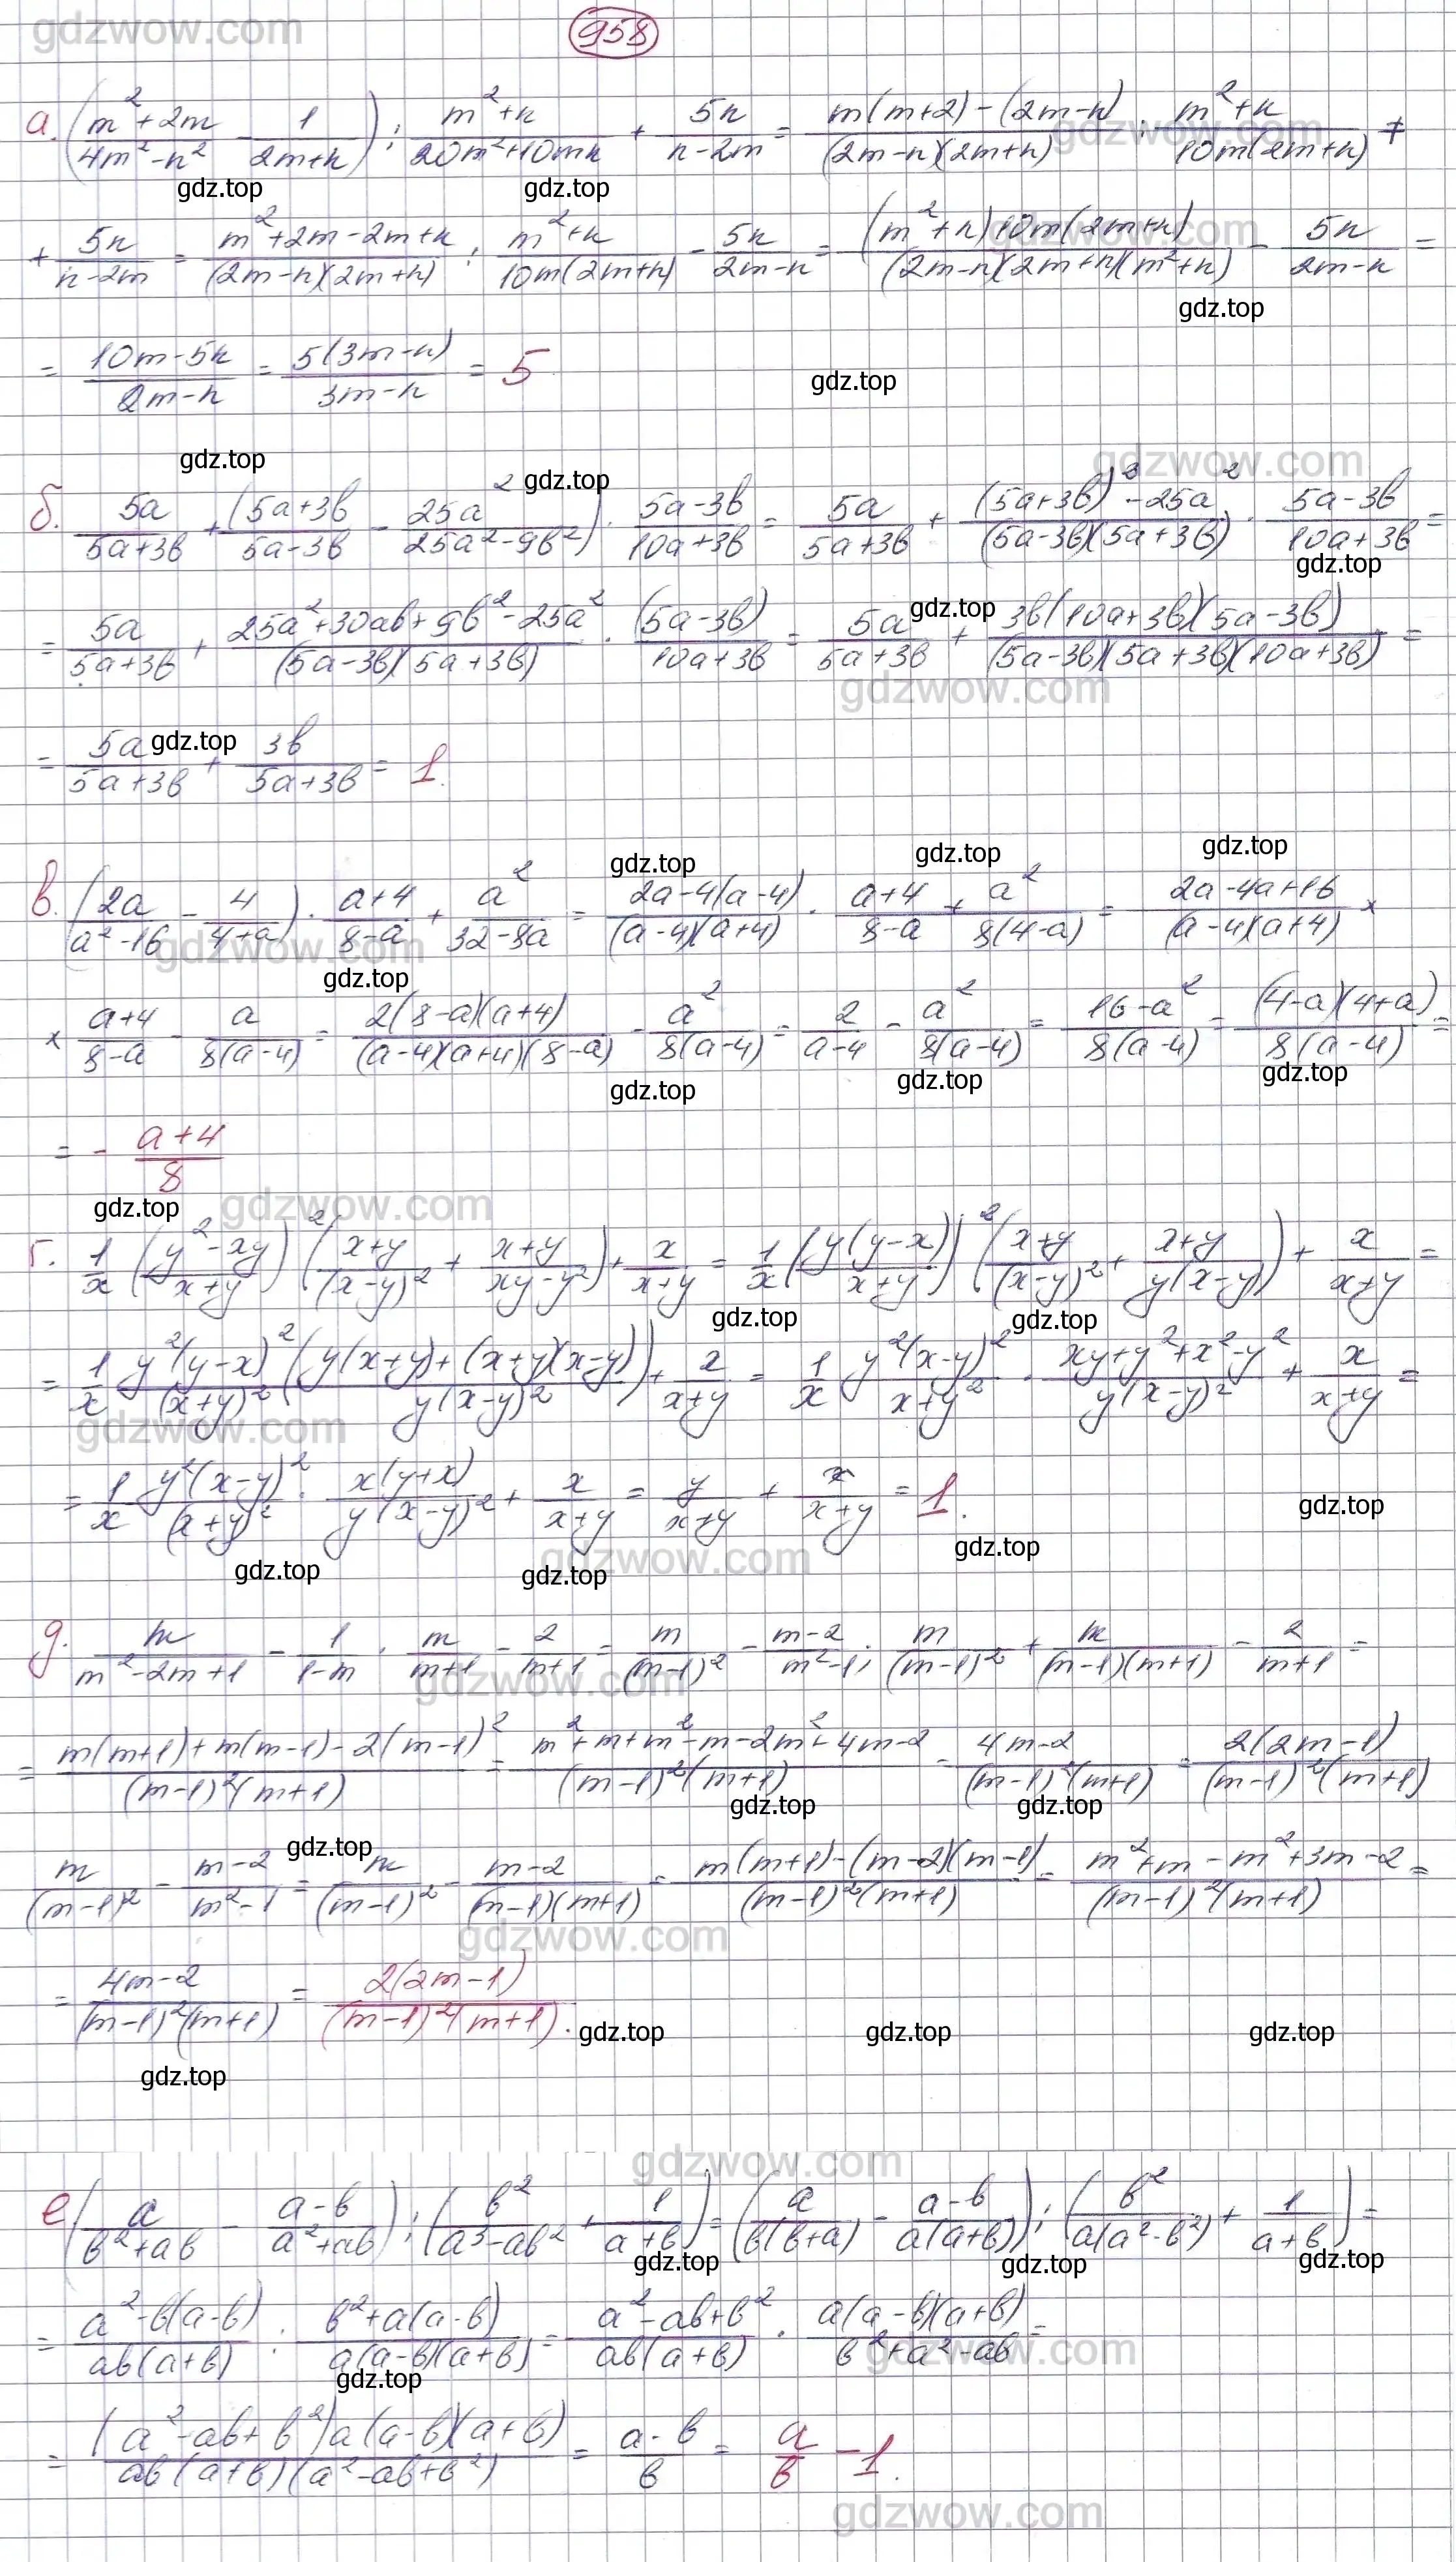 gdzwow.com 958
а. ((m²+2m)/(4m²-n²) - 1/(2m+n)) : (m²+n)/(20m²+10mn) + 5n/(n-2m) = (m(m+2)-(2m-n))/((2m-n)(2m+n)) : (m²+n)/(10m(2m+n)) +
gdzwow.com
gdz.top gdz.top
+ 5n/(n-2m) = (m²+2m-2m+n)/((2m-n)(2m+n)) : (m²+n)/(10m(2m+n)) - 5n/(2m-n) = ((m²+n)10m(2m+n))/((2m-n)(2m+n)(m²+n)) - 5n/(2m-n) =
gdzwow.com
gdz.top
= (10m-5n)/(2m-n) = 5(3m-n)/(3m-n) = 5
gdz.top
gdz.top gdz.top gdzwow.com
б. 5a/(5a+3b) + ((5a+3b)/(5a-3b) - 25a²/(25a²-9b²)) · (5a-3b)/(10a+3b) = 5a/(5a+3b) + ((5a+3b)²-25a²)/((5a-3b)(5a+3b)) · (5a-3b)/(10a+3b) =
gdz.top
gdz.top
= 5a/(5a+3b) + (25a²+30ab+9b²-25a²)/((5a-3b)(5a+3b)) · (5a-3b)/(10a+3b) = 5a/(5a+3b) + (3b(10a+3b)(5a-3b))/((5a-3b)(5a+3b)(10a+3b)) =
gdzwow.com
gdz.top
= 5a/(5a+3b) + 3b/(5a+3b) = 1.
gdz.top gdz.top gdz.top
в. (2a/(a²-16) - 4/(4+a)) · (a+4)/(8-a) + a²/(32-8a) = (2a-4(a-4))/((a-4)(a+4)) · (a+4)/(8-a) + a²/(8(4-a)) = (2a-4a+16)/((a-4)(a+4)) ×
gdzwow.com
gdz.top
× (a+4)/(8-a) - a/(8(a-4)) = (2(8-a)(a+4))/((a-4)(a+4)(8-a)) - a²/(8(a-4)) = 2/(a-4) - a²/(8(a-4)) = (16-a²)/(8(a-4)) = ((4-a)(4+a))/(8(a-4)) =
gdz.top gdz.top gdz.top
= - (a+4)/8
gdz.top gdzwow.com
г. 1/x ((y²-xy)/(x+y))² ((x+y)/(x-y)² + (x+y)/(xy-y²)) + x/(x+y) = 1/x (y(y-x)/(x+y))² ((x+y)/(x-y)² + (x+y)/(y(x-y))) + x/(x+y) =
gdz.top gdz.top
= 1/x y²(y-x)²/(x+y)² ((y(x+y)+(x+y)(x-y))/(y(x-y)²)) + x/(x+y) = 1/x y²(x-y)²/(x+y)² · (xy+y²+x²-y²)/(y(x-y)²) + x/(x+y) =
gdzwow.com
= 1/x y²(x-y)²/(x+y)² · x(y+x)/(y(x-y)²) + x/(x+y) = y/(x+y) + x/(x+y) = 1.
gdz.top
gdz.top gdz.top gdzwow.com gdz.top
д. m/(m²-2m+1) - 1/(1-m) · m/(m+1) - 2/(m+1) = m/(m-1)² - (m-2)/(m²-1); m/(m-1)² + m/((m-1)(m+1)) - 2/(m+1) =
gdzwow.com
= (m(m+1)+m(m-1)-2(m-1)²)/((m-1)²(m+1)) = (m²+m+m²-m-2m²+4m-2)/((m-1)²(m+1)) = (4m-2)/((m-1)²(m+1)) = 2(2m-1)/((m-1)²(m+1))
gdz.top gdz.top
gdz.top
m/(m-1)² - (m-2)/(m²-1) = m/(m-1)² - (m-2)/((m-1)(m+1)) = (m(m+1)-(m-2)(m-1))/((m-1)²(m+1)) = (m²+m-m²+3m-2)/((m-1)²(m+1)) =
gdzwow.com
= (4m-2)/((m-1)²(m+1)) = 2(2m-1)/((m-1)²(m+1)).
gdz.top gdz.top gdz.top
gdz.top
gdzwow.com
е (a/(b²+ab) - (a-b)/(a²+ab)) : (b²/(a³-ab²) + 1/(a+b)) = (a/(b(b+a)) - (a-b)/(a(a+b))) : (b²/(a(a²-b²)) + 1/(a+b)) =
gdz.top gdz.top gdz.top
= (a²-b(a-b))/(ab(a+b)) : (b²+a(a-b))/(a(a-b)(a+b)) = (a²-ab+b²)/(ab(a+b)) · (a(a-b)(a+b))/(b²+a²-ab) =
gdzwow.com
gdz.top
= ((a²-ab+b²)a(a-b)(a+b))/(ab(a+b)(a²-ab+b²)) = (a-b)/b = a/b - 1.
gdzwow.com